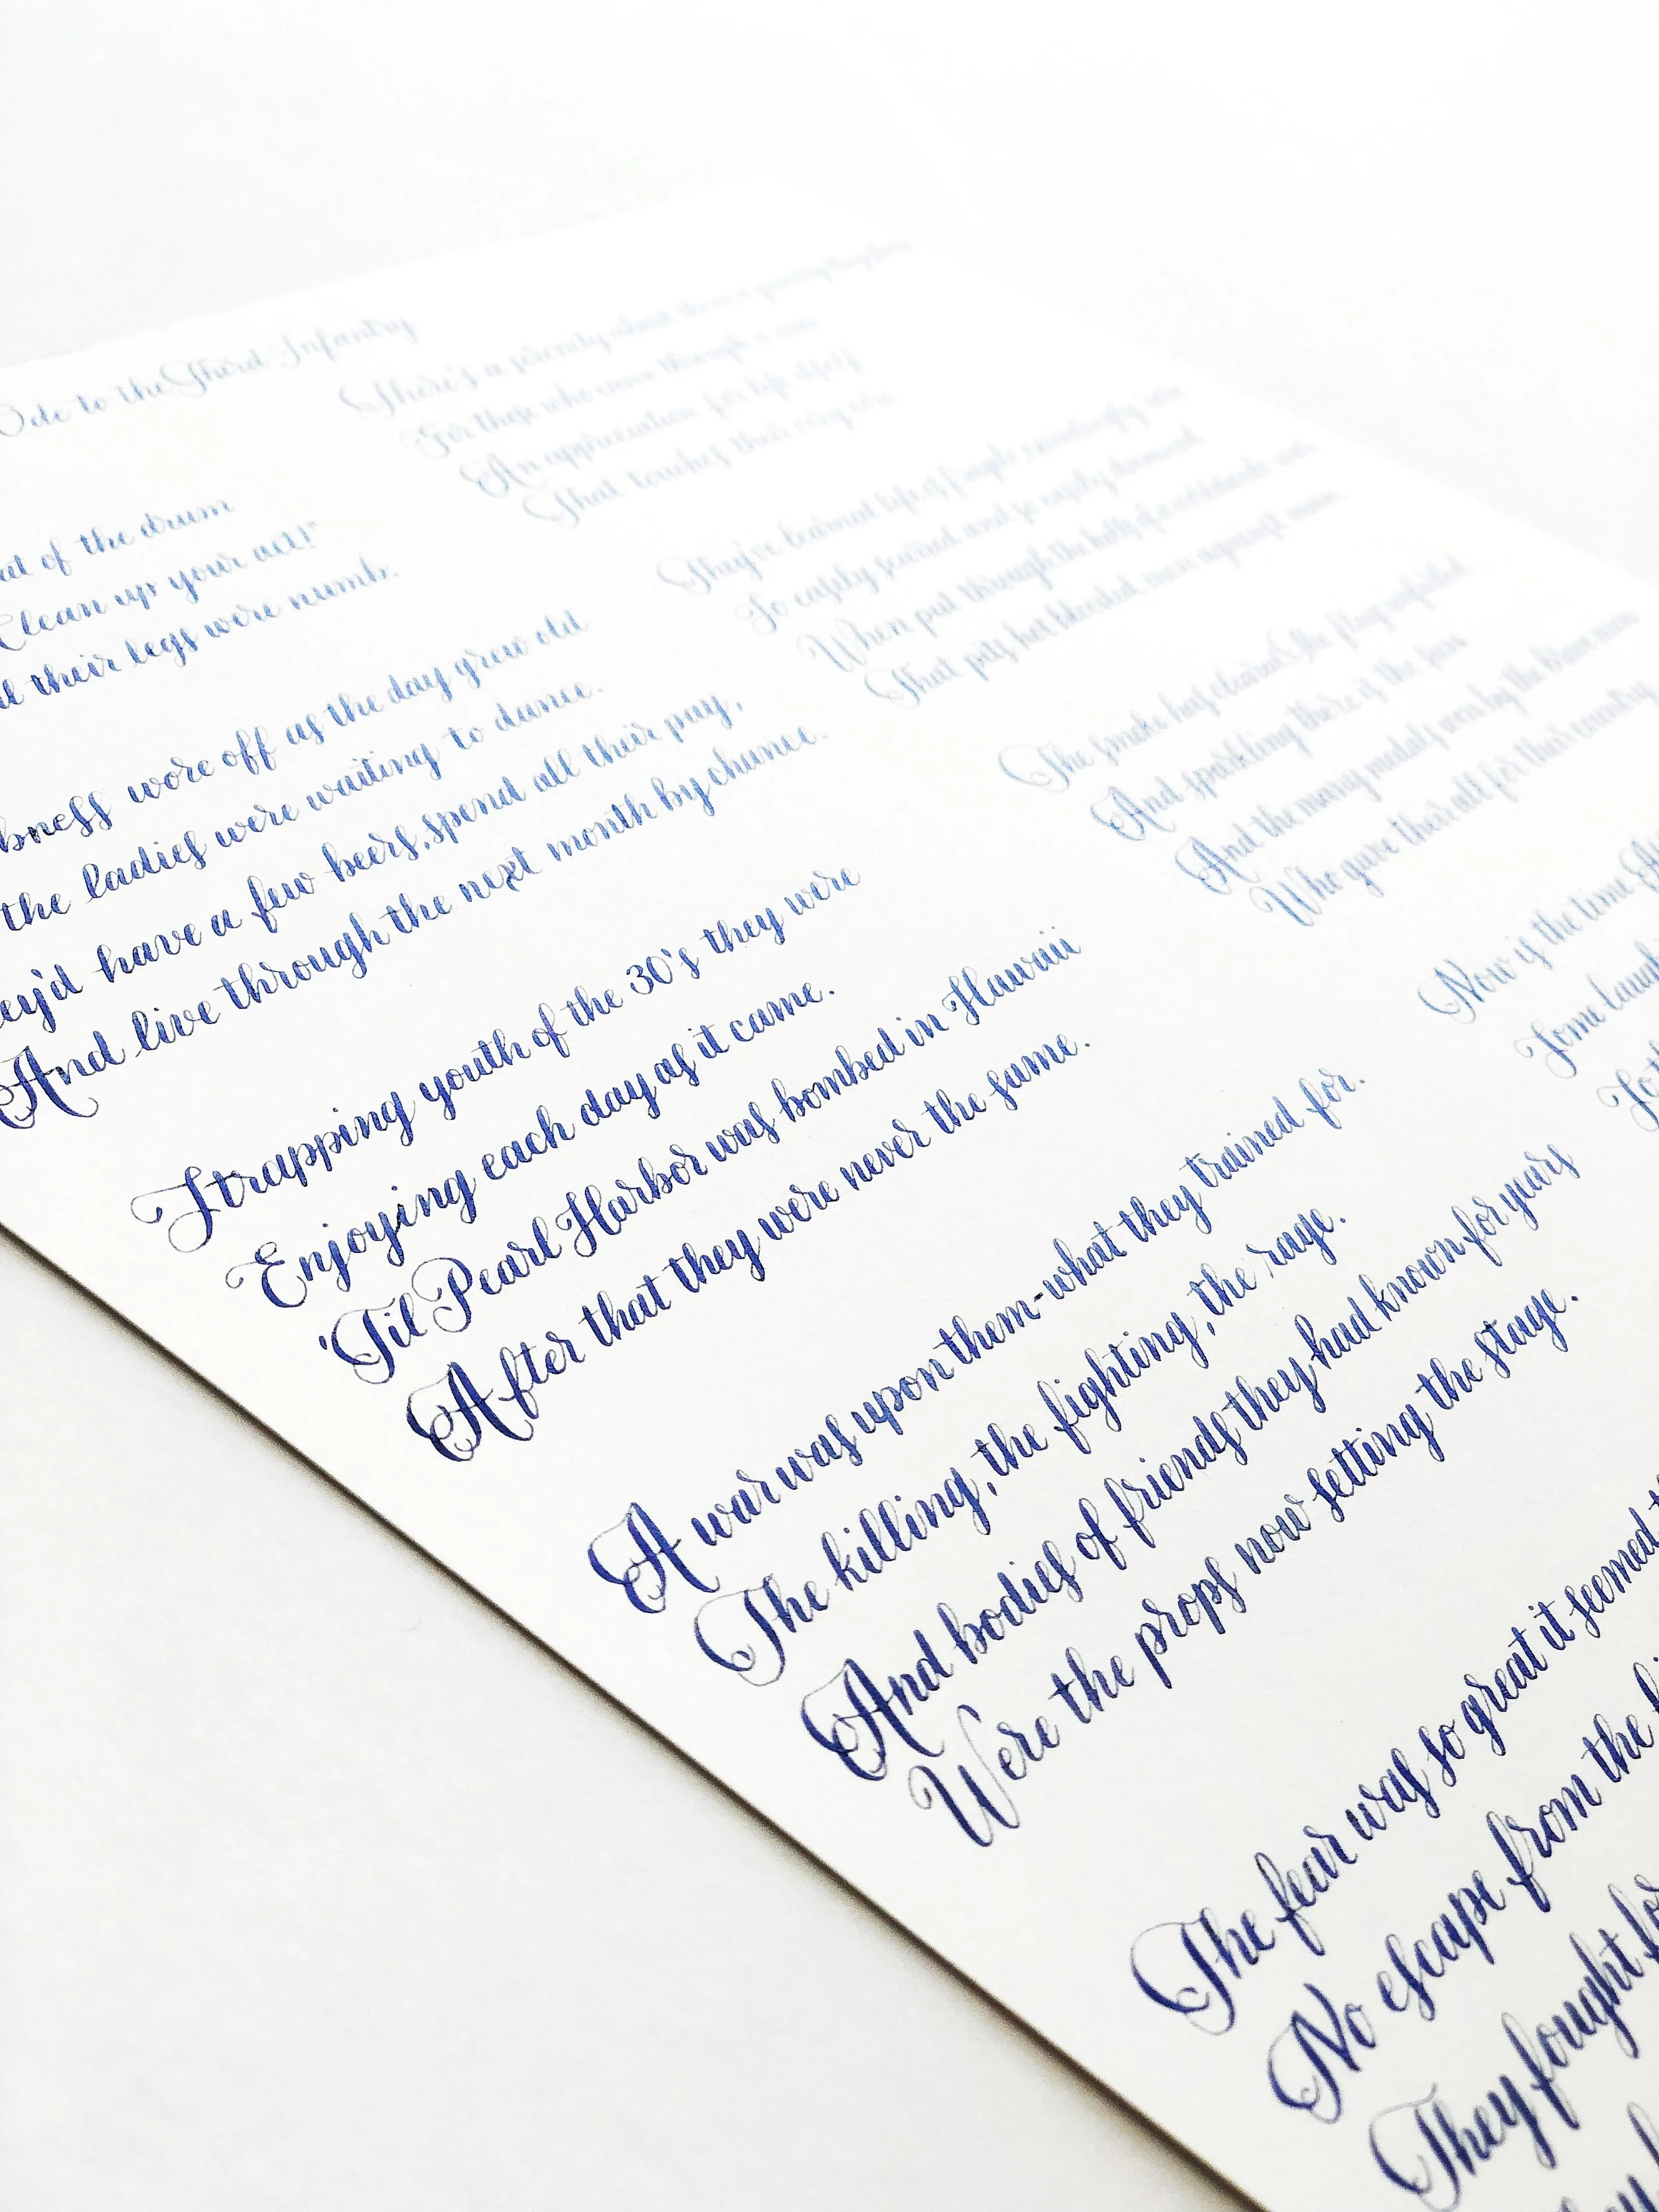 Ode to the Third Infantry
of the drum
Clean up your act!"
their legs were numb.
wore off as the day grew old
the ladies were waiting to dance.
have a few beers, spend all their pay,
And live through the next month by chance.
Strapping youth of the 30's they were
Enjoying each day as it came.
'Til Pearl Harbor was bombed in Hawaii
After that they were never the same.
A war was upon them-what they trained for.
The killing, the fighting, the rage.
And bodies of friends they had known for years
Were the props now setting the stage.
The fear was so great it seemed
No escape from the
They fought
There's a serenity about them, a
For those who came through a war
An appreciation for life itself
That touches their very core
They've learned life is fragile exceedingly
So easily
When put through the hells of a worldwide war
That pits hot blooded men against man.
The smoke has cleared, the flag unfurled
And sparkling there is the
And the many medals won by the brave men
Who gave their all for their country
Now is the time
Some